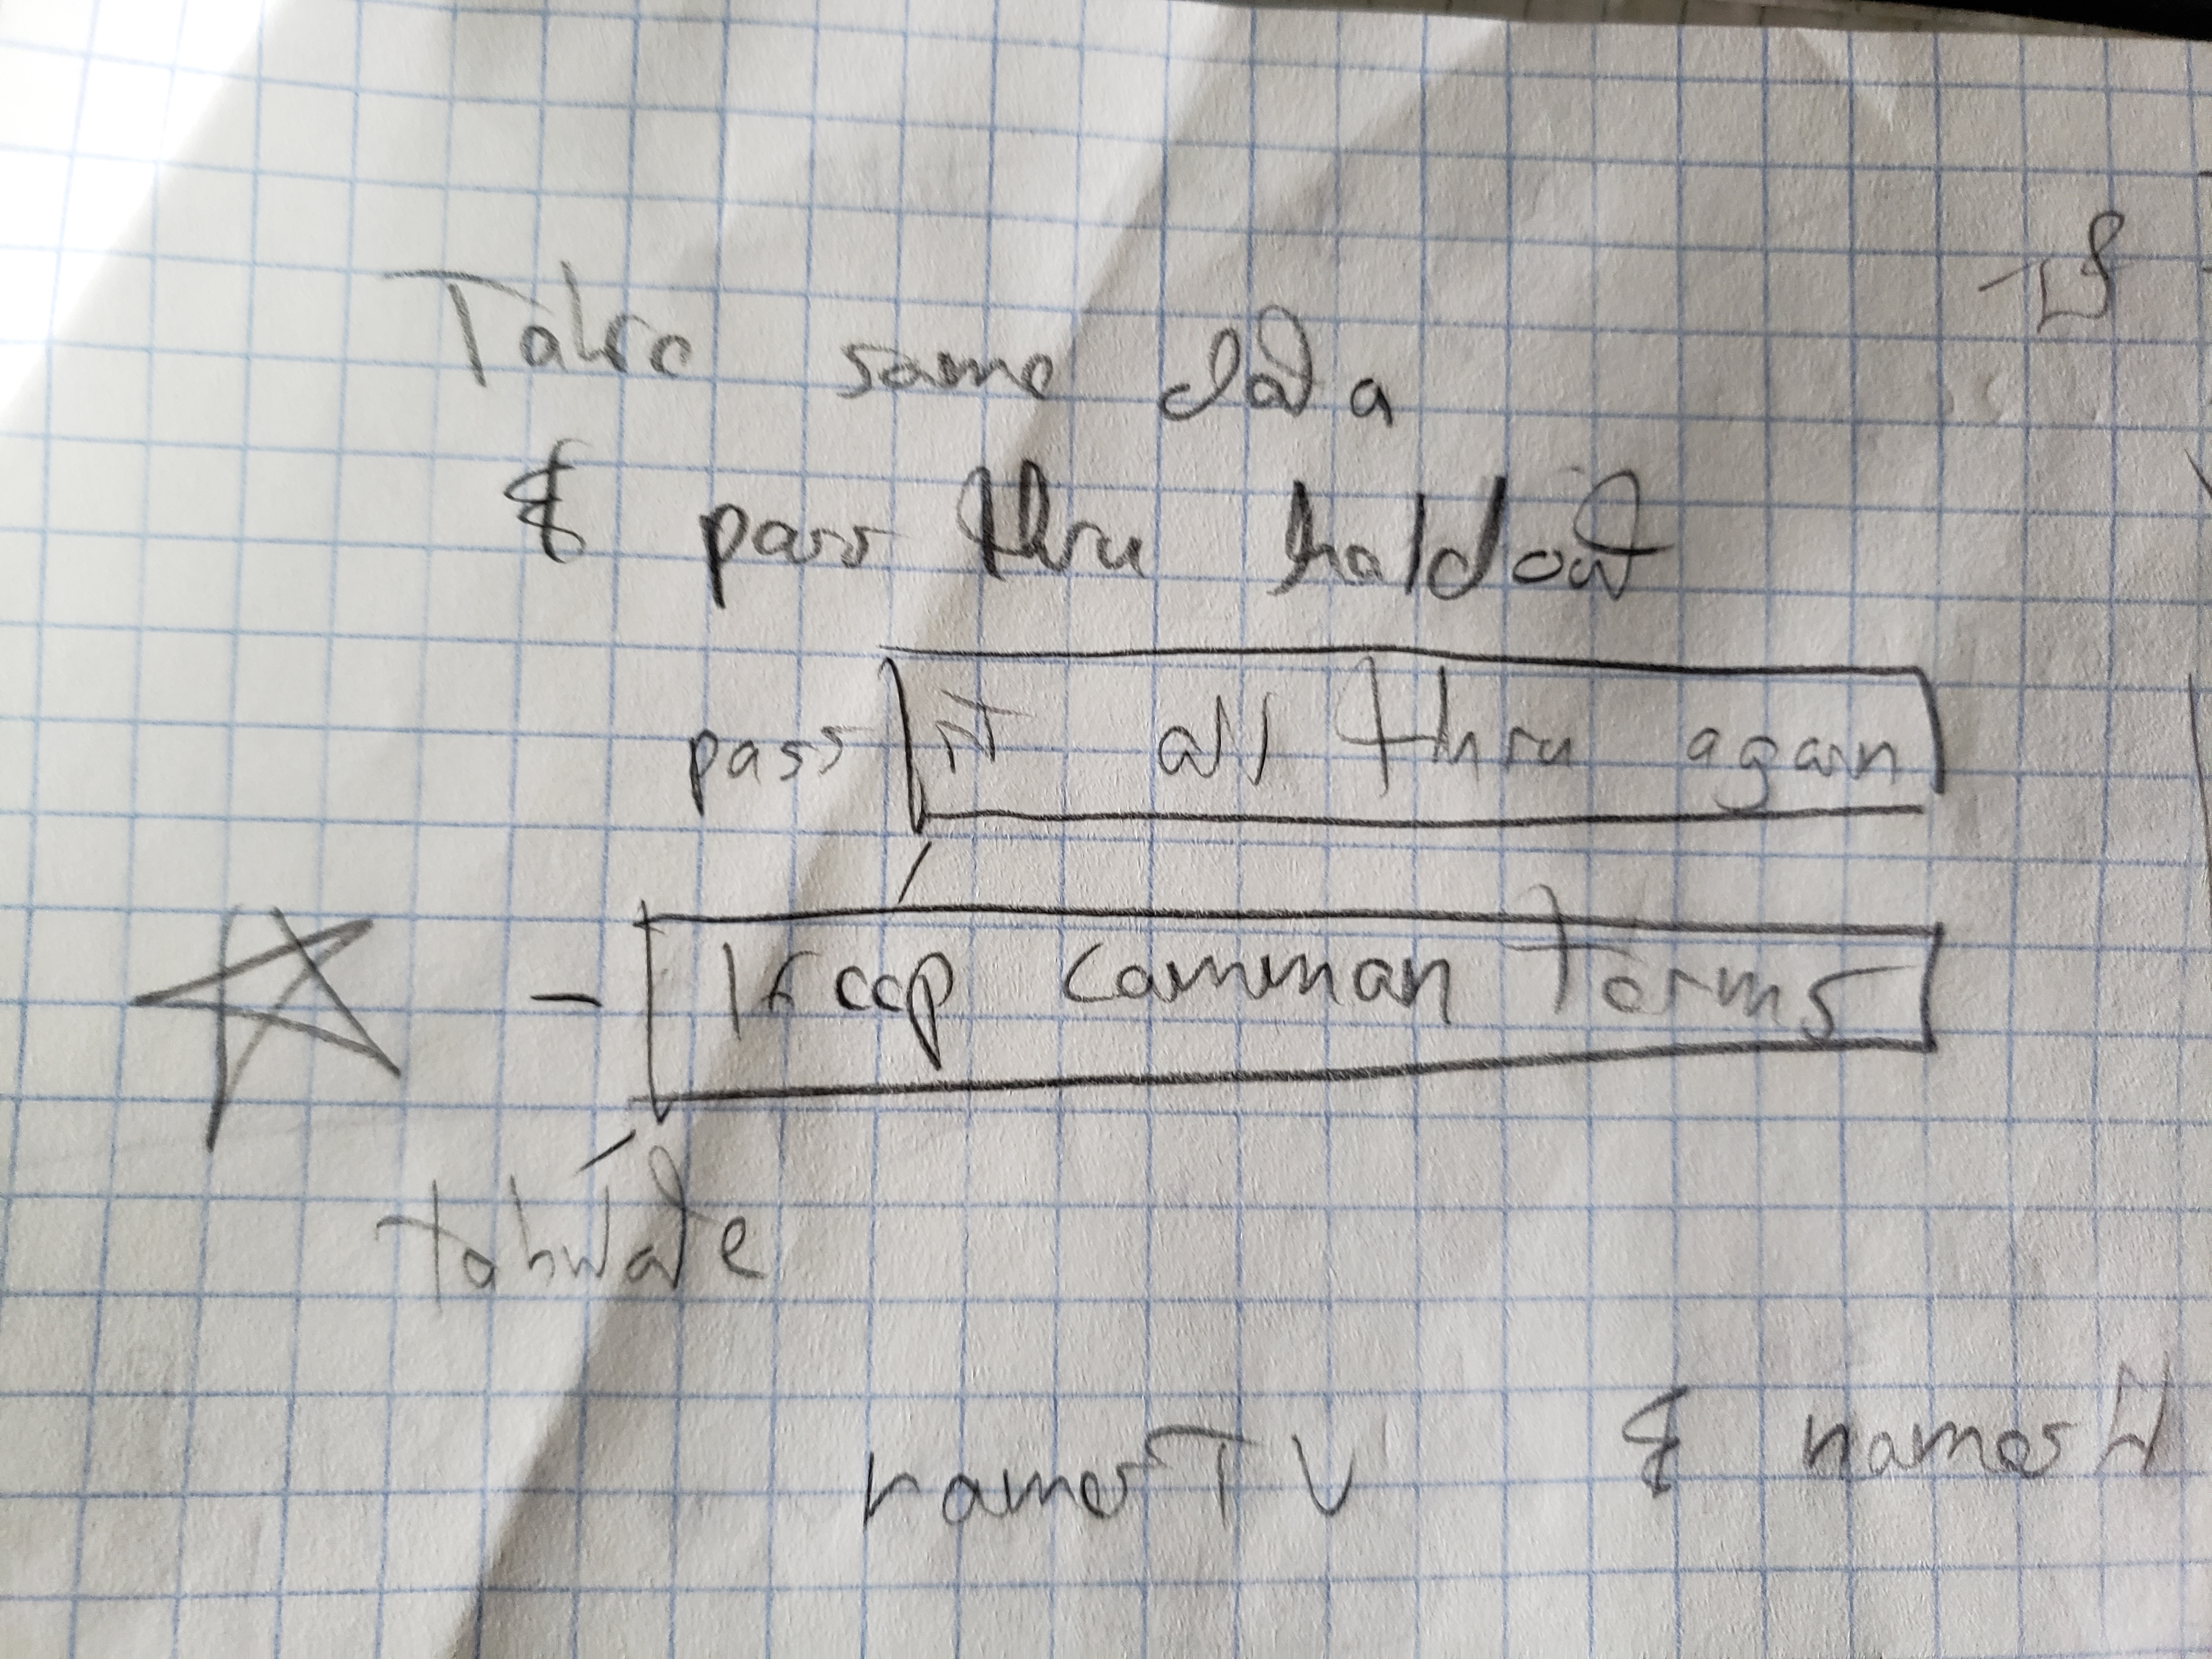 If
Take same data
& pass thru holdout
pass it all thru again
- Keep common terms
tabulate
names TV & names H